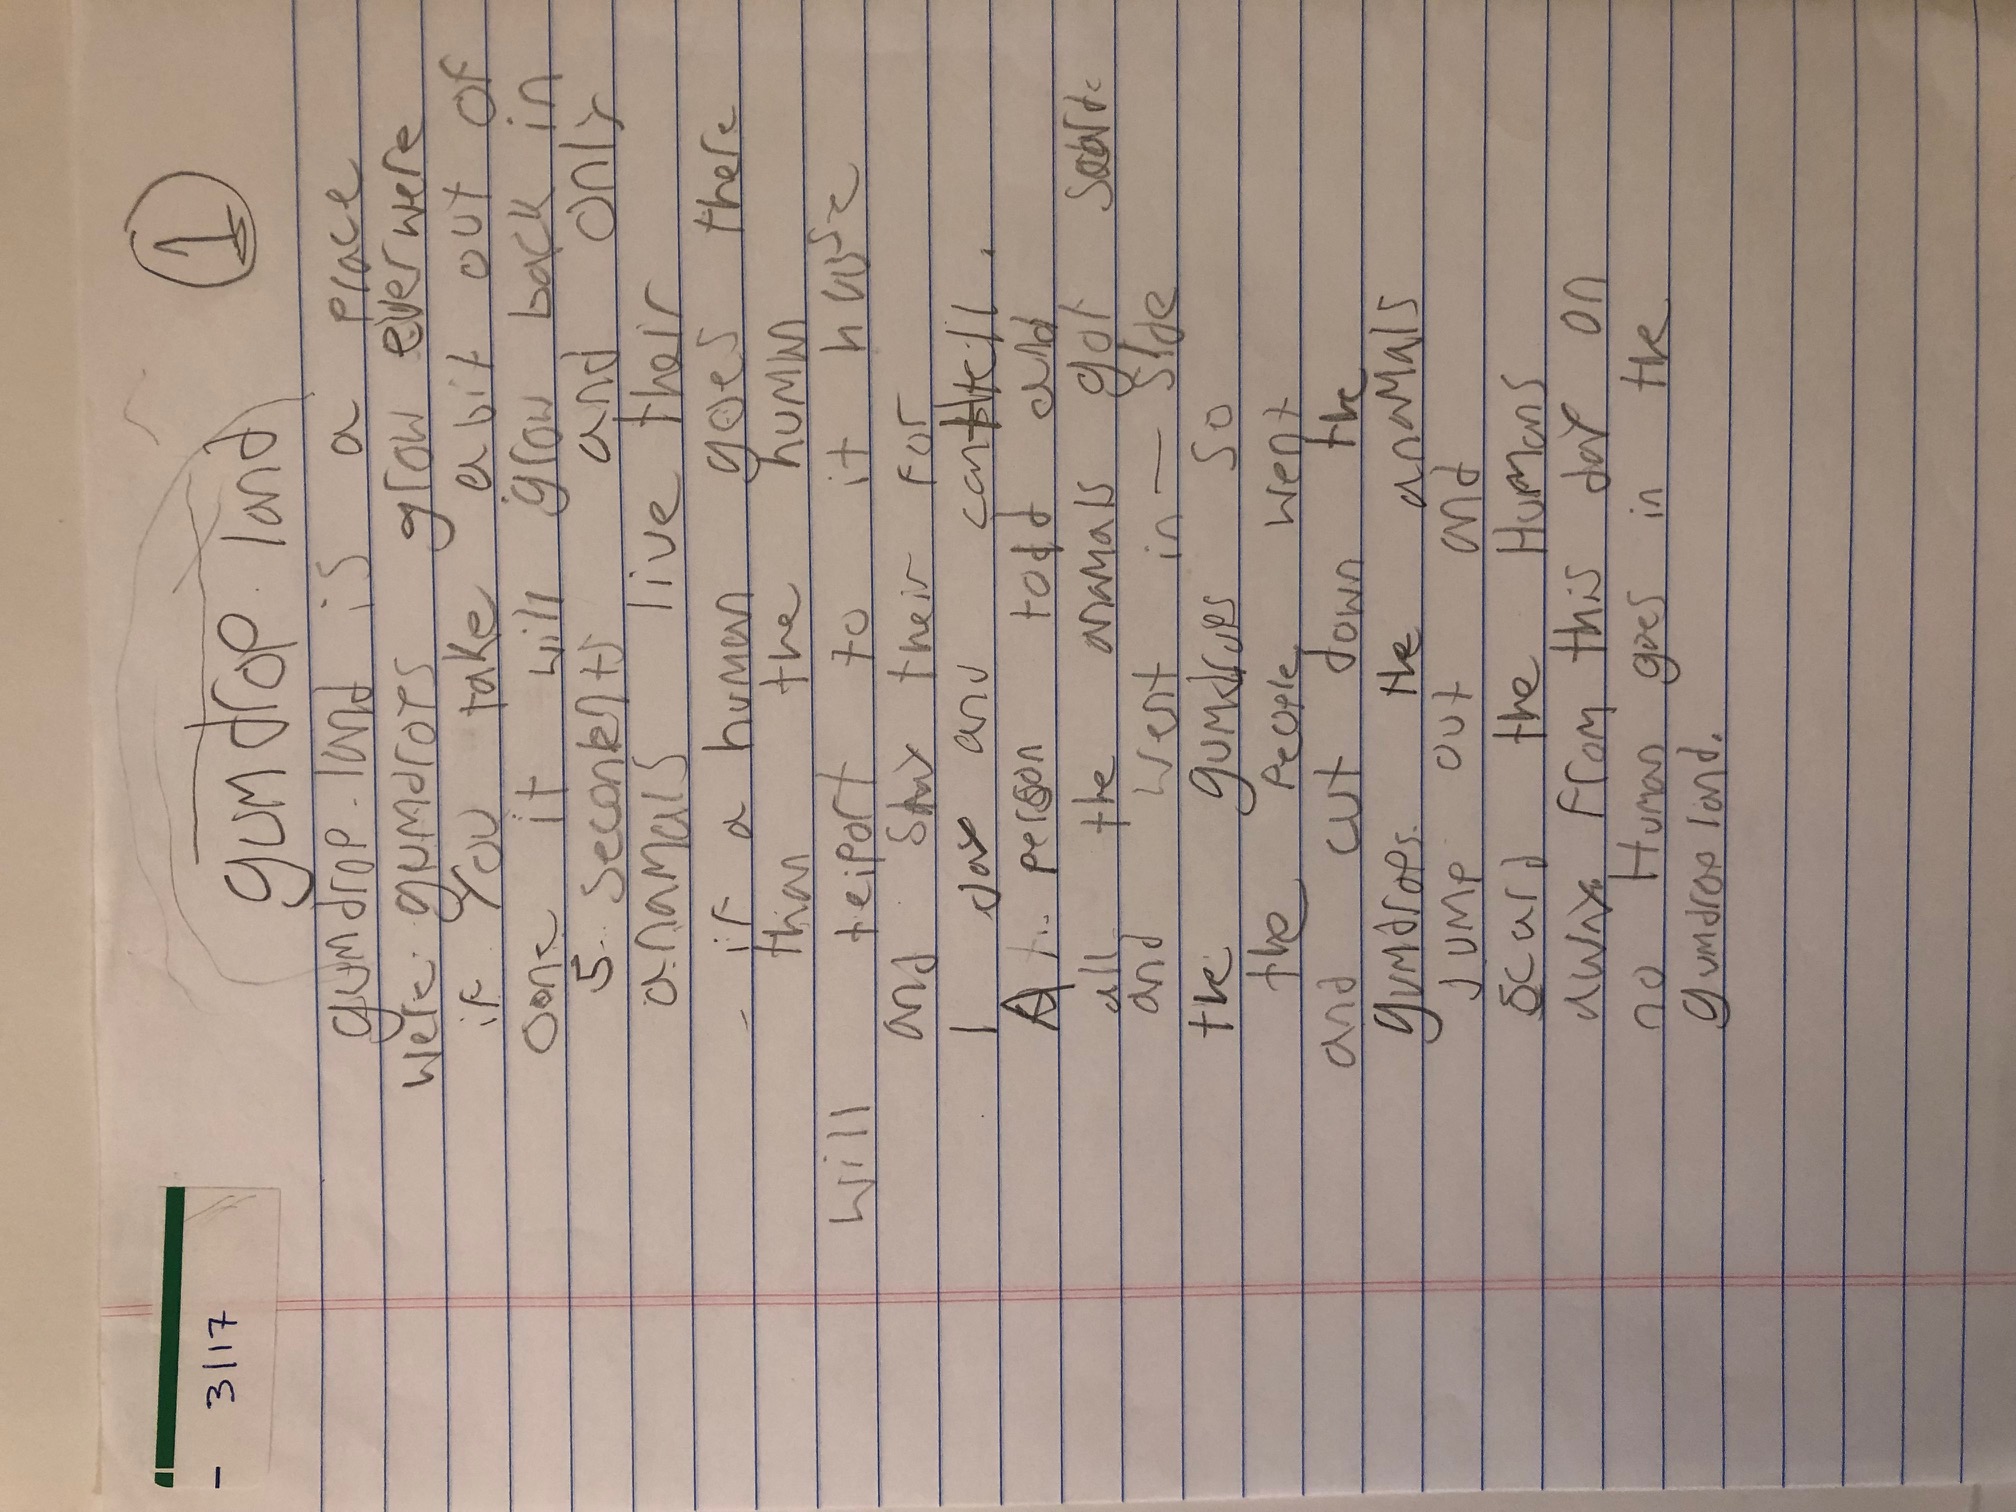 - 3/17
1
gumdrop land
gumdrop land is a place
were gumdrops grow everwere
if you take a bit out of
oone it will grow back in
5 seconents and only
anamals live their
- if a human goes there
than the human
will teiport to it house
and stay their for
1 day and cant tell.
A person todd and
all the anamals got
and went in - side
the gumdrops so
the people went
and cut down the
gumdrops. the anamals
jump out and
scard the Humans
away from this day on
no Human goes in the
gumdrop land.